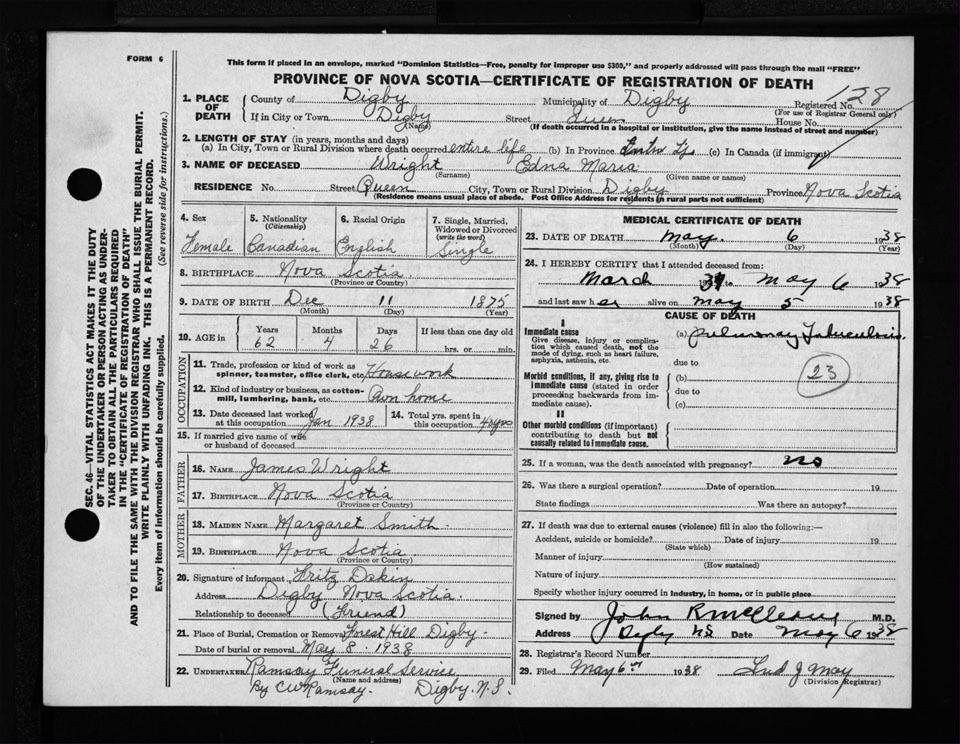 FORM 6
This form if placed in an envelope, marked "Dominion Statistics—Free, penalty for improper use $300," and properly addressed will pass through the mail "FREE"
PROVINCE OF NOVA SCOTIA—CERTIFICATE OF REGISTRATION OF DEATH
SEC. 46—VITAL STATISTICS ACT MAKES IT THE DUTY
OF THE UNDERTAKER OR PERSON ACTING AS UNDER-
TAKER TO OBTAIN ALL THE PARTICULARS REQUIRED
IN THE "CERTIFICATE OF REGISTRATION OF DEATH"
AND TO FILE THE SAME WITH THE DIVISION REGISTRAR WHO SHALL ISSUE THE BURIAL PERMIT.
WRITE PLAINLY WITH UNFADING INK. THIS IS A PERMANENT RECORD.
Every item of information should be carefully supplied. (See reverse side for instructions.)
1. PLACE OF DEATH
County of Digby Municipality of Digby Registered No. 128
(For use of Registrar General only)
If in City or Town Digby Street Queen House No.
(Name)
(If death occurred in a hospital or institution, give the name instead of street and number)
2. LENGTH OF STAY (in years, months and days)
(a) In City, Town or Rural Division where death occurred entire life (b) In Province (c) In Canada (if immigrant)
3. NAME OF DECEASED Wright Edna Maria
(Surname) (Given name or names)
RESIDENCE No. Street Queen City, Town or Rural Division Digby Province Nova Scotia
(Residence means usual place of abode. Post Office Address for residents in rural parts not sufficient)
4. Sex Female
5. Nationality (Citizenship) Canadian
6. Racial Origin English
7. Single, Married, Widowed or Divorced (write the word) Single
8. BIRTHPLACE Nova Scotia
(Province or Country)
9. DATE OF BIRTH Dec 11 1875
(Month) (Day) (Year)
10. AGE in Years 62 Months 4 Days 26 If less than one day old hrs. or min.
OCCUPATION
11. Trade, profession or kind of work as spinner, teamster, office clerk, etc. Housework
12. Kind of industry or business, as cotton-mill, lumbering, bank, etc. Own home
13. Date deceased last worked at this occupation Jan 1938
14. Total yrs. spent in this occupation
15. If married give name of wife or husband of deceased
FATHER
16. NAME James Wright
17. BIRTHPLACE Nova Scotia
(Province or Country)
MOTHER
18. MAIDEN NAME Margaret Smith
19. BIRTHPLACE Nova Scotia
(Province or Country)
20. Signature of informant Fritz Dakin
Address Digby Nova Scotia
Relationship to deceased (Friend)
21. Place of Burial, Cremation or Removal Forest Hill Digby
Date of burial or removal May 8 1938
22. UNDERTAKER Ramsay Funeral Service
(Name and address)
By CW Ramsay. Digby. N.S.
MEDICAL CERTIFICATE OF DEATH
23. DATE OF DEATH May 6 1938
(Month) (Day) (Year)
24. I HEREBY CERTIFY that I attended deceased from:
March to May 6 1938
and last saw her alive on May 5 1938
CAUSE OF DEATH
I
Immediate cause (a) Pulmonary Tuberculosis
Give disease, injury or complication which caused death, not the mode of dying, such as heart failure, asphyxia, asthenia, etc.
due to
23
Morbid conditions, if any, giving rise to immediate cause (stated in order proceeding backwards from immediate cause).
(b)
due to
(c)
II
Other morbid conditions (if important) contributing to death but not causally related to immediate cause.
25. If a woman, was the death associated with pregnancy? no
26. Was there a surgical operation? Date of operation 19
State findings Was there an autopsy?
27. If death was due to external causes (violence) fill in also the following:—
Accident, suicide or homicide? Date of injury 19
(State which)
Manner of injury
(How sustained)
Nature of injury
Specify whether injury occurred in industry, in home, or in public place
Signed by John R McCleave M.D.
Address Digby NS Date May 6 1938
28. Registrar's Record Number
29. Filed May 6th 1938
(Division Registrar)